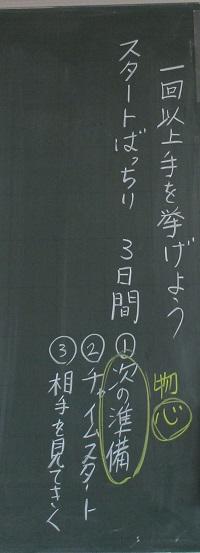 一回以上手を挙げよう
スタートばっちり 3日間
①次の準備
物心
②チャイムスタート
③相手を見てきく